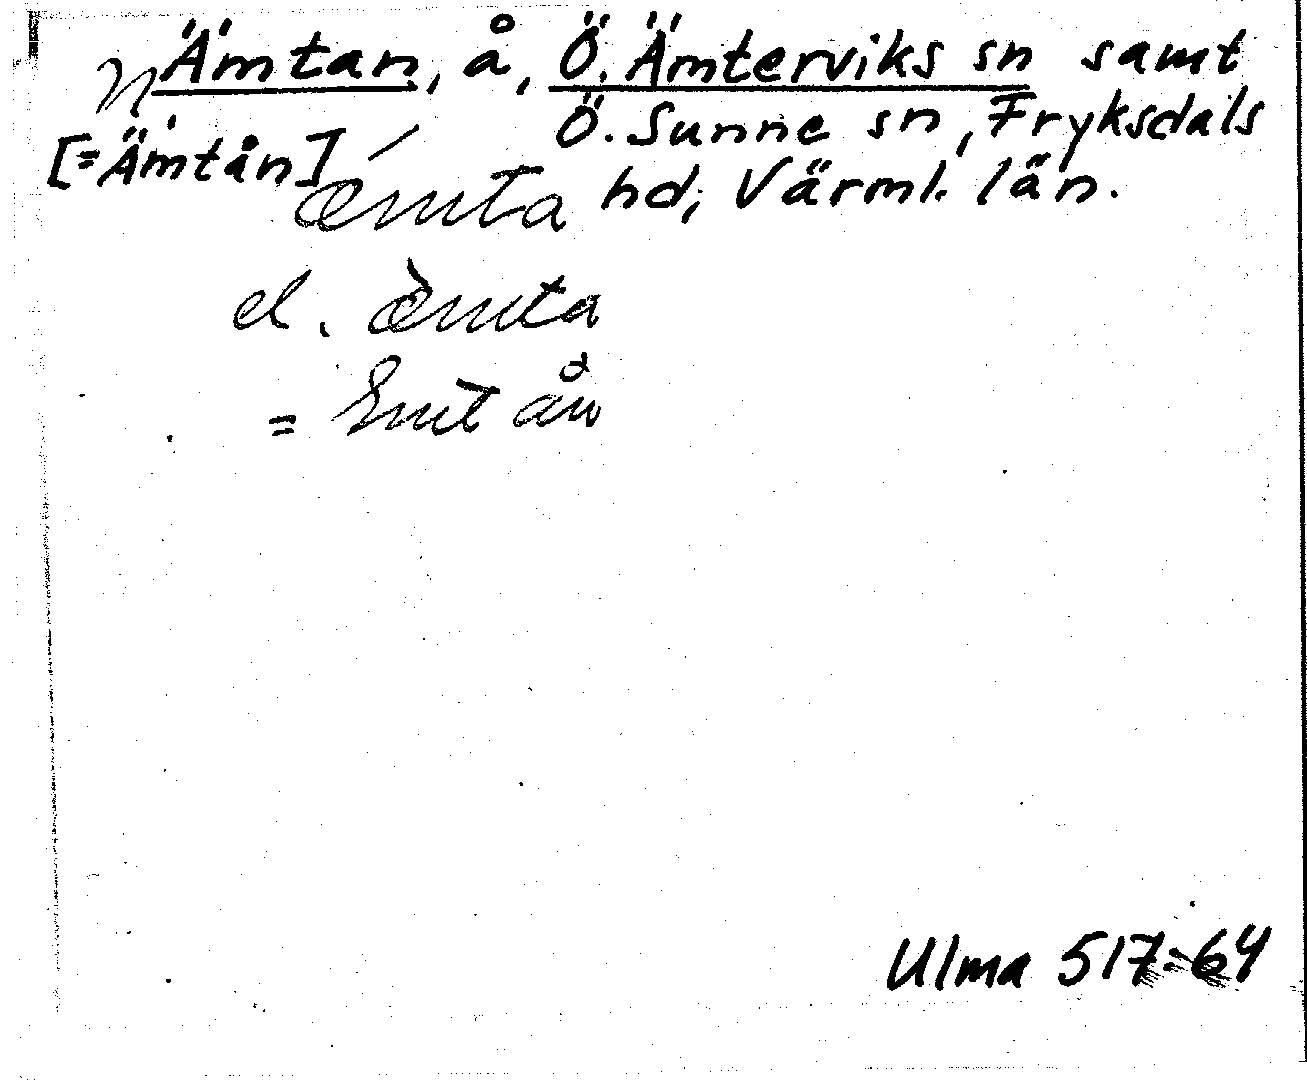 Ämtan, å, Ö. Ämterviks sn samt
Ö. Sunne sn, Fryksdals
[= Ämtån]
hd, Värml. län.
ǽmta
el. æ̀mta
= Emtån
Ulma 517:64